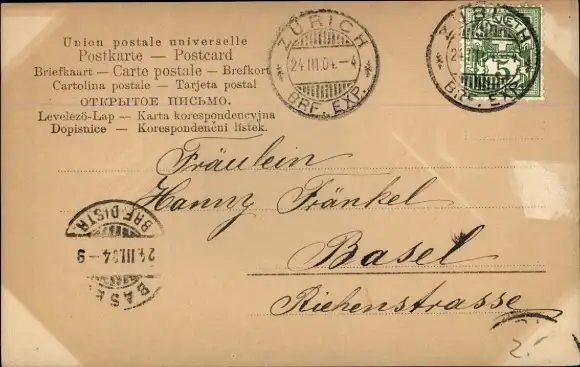 Union postale universelle
Postkarte — Postcard
Briefkaart — Carte postale — Brefkort
Cartolina postale — Tarjeta postal
ОТКРЫТОЕ ПИСЬМО.
Levelező-Lap — Karta korespondencyjna
Dopisnice — Korespondenční lístek.
ZÜRICH
24.III.04.—4
BRF. EXP.
ZÜRICH
HELVETIA
5
BRF. EXP.
Fräulein
Hanny Fränkel
Basel
Riehenstrasse
BASEL
24.III.04—9
BRF. DISTR.